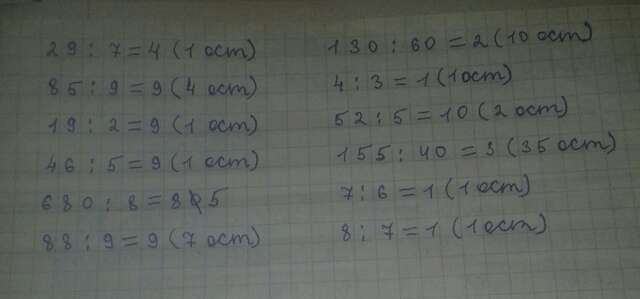 29 : 7 = 4 (1 ост)
85 : 9 = 9 (4 ост)
19 : 2 = 9 (1 ост)
46 : 5 = 9 (1 ост)
680 : 8 = 85
88 : 9 = 9 (7 ост)
130 : 60 = 2 (10 ост)
4 : 3 = 1 (1 ост)
52 : 5 = 10 (2 ост)
155 : 40 = 3 (35 ост)
7 : 6 = 1 (1 ост)
8 : 7 = 1 (1 ост)